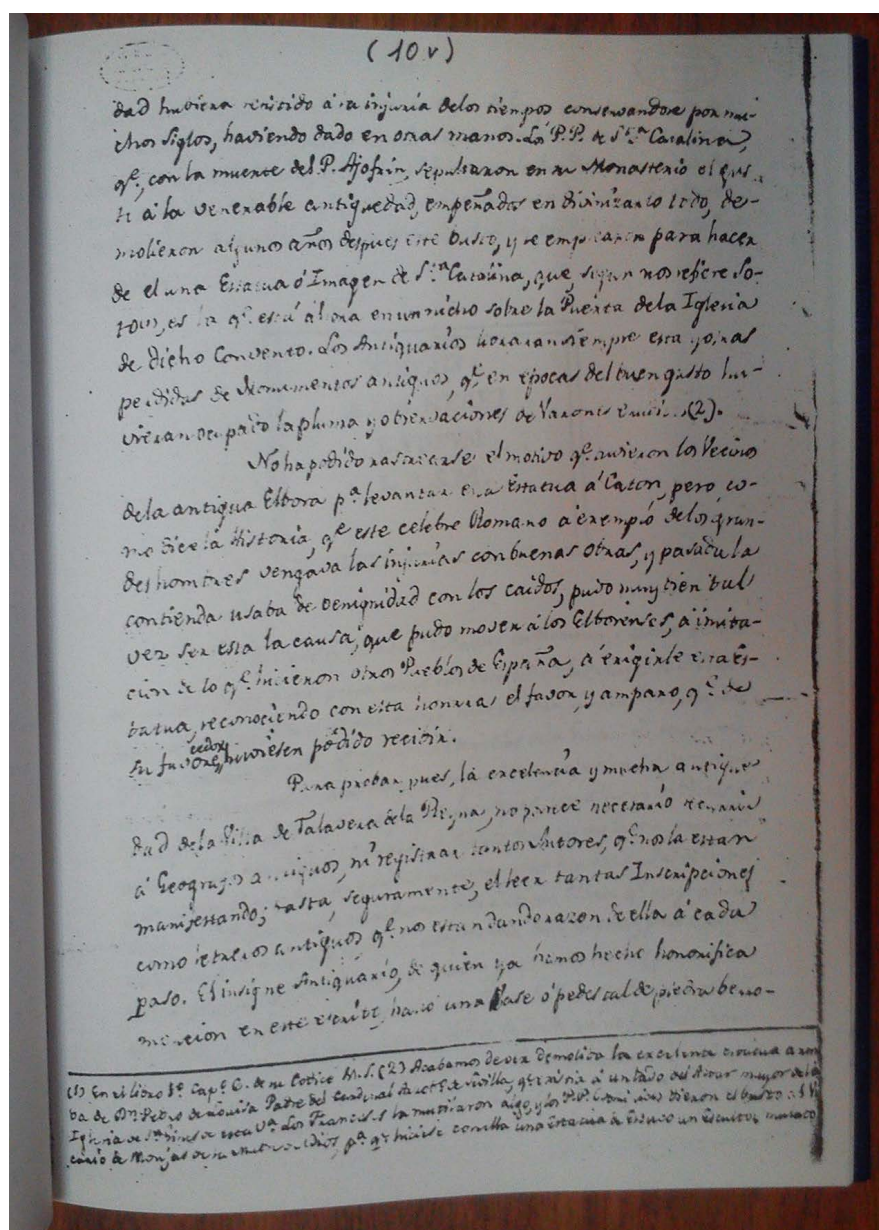 (10v)
dad huviera resistido á la injuria de los tiempos conservandose por mu-
chos siglos, haviendo dado en otras manos. Los P.P. de S.ta Catalina,
q.e, con la muerte del P. Ajofrin, sepultaron en su Monasterio el gus-
to á la venerable antiguedad, empeñados en divinizarlo todo, de-
molieron algunos años despues este busto, y se emplearon para hacer
de el una Estatua ó Imagen de S.ta Catalina, que, segun nos refiere So-
to(1), es la q.e está ahora en un nicho sobre la Puerta de la Iglesia
de dicho Convento. Los Antiquarios lloraran siempre esta y otras
perdidas de Monumentos antiguos, q.e en epocas del buen gusto hu-
vieran ocupado la pluma y observaciones de Varones (2).
No ha podido rastrearse el motivo q.e tuvieron los Vecinos
de la antigua Elbora p.a levantar esta Estatua á Caton, pero, co-
mo dice la Historia, q.e este celebre Romano á exemplo de los gran-
des hombres vengava las injurias con buenas obras, y pasada la
contienda usaba de benignidad con los caidos, pudo muy bien tal
vez ser esta la causa, que pudo mover á los Elborenses, á imita-
cion de lo q.e hicieron otros Pueblos de España, á erigirle esta Es-
tatua, reconociendo con esta honra el favor, y amparo, q.e de
su huviesen podido recibir.
Para probar, pues, la excelencia y mucha antigue
dad de la Villa de Talavera de la Reyna, no parece necesario recurrir
á Geografos antiguos, ni registrar tantos Autores, q.e nos la estan
manifestando; basta, seguramente, el leer tantas Inscripciones
como letreros antiguos q.e nos estan dando razon de ella á cada
paso. El insigne Antiquario, de quien ya hemos hecho honorifica
mencion en este escrito, halló una Base ó pedestal de piedra berro-
(1) En el libro 1º Cap.º 6. de su Codice M.S. (2) Acabamos de ver demolida la excelente
de Dn. Pedro de Loaisa Padre del Cardenal de Sevilla, q.e á un lado del Altar mayor de la
Iglesia de de esta V.a Los la mutilaron algo, y los P.P. dieron el busto al
de Monjas de p.a q.e hiciese con ella una estatua de un Escultor